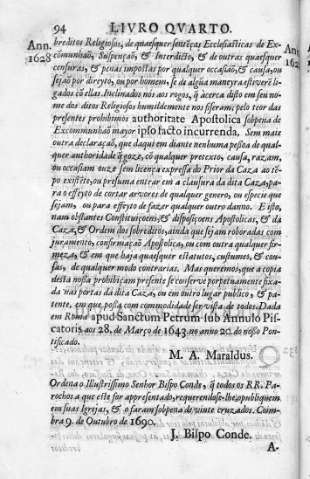 94 LIVRO QVARTO.
Ann. 1628
breditos Religiosos, de quaesquer sentẽças Ecclesiasticas de Ex-
cõmunhaõ, Suspençaõ, & Interdicto, & de outras quaesquer
censuras, & penas impostas por qualquer occasiaõ, & causa, ou
sejaõ por direyto, ou por homem, se de algũa maneyra estiverẽ li-
gados cõ ellas. Inclinados nós aos rogos, q̃ acerca disso em seu no-
me dos ditos Religiosos humildemente nos fiseram; pelo teor das
presentes prohibimos authoritate Apostolica sobpena de
Excommunhaõ mayor ipso facto incurrenda. Sem mais
outra declaraçaõ, que daqui em diante nenhuma pessoa de qual-
quer authoridade q̃ goze, cõ qualquer pretexto, causa, razam,
ou occasiam ouze sem licença expressa do Prior da Caza ao tẽ-
po existẽte, ou presuma entrar em a clausura da dita Caza, pa-
ra o effeyto de cortar arvores de qualquer genero, ou especie que
sejam, ou para effeyto de fazer qualquer outro danno. E isto,
nam obstantes Constituiçoens, & disposiçoens Apostolicas, & da
Caza, & Ordem dos sobreditos, ainda que sejam roboradas com
juramento, confirmaçaõ Apostolica, ou com outra qualquer fir-
meza, & em que haja quaesquer estatutos, custumes, & cou-
sas, de qualquer modo contrarias. Mas queremos, que a copia
desta nossa prohibiçam presente se conserve perpetuamente fixa-
da nas portas da dita Caza, ou em outro lugar publico, & pa-
tente, em que possa com commodidade ser vista de todos. Dada
em Roma apud Sanctum Petrum sub Annulo Pis-
catoris aos 28. de Março de 1643. no anno 20. do nosso Pon-
tificado.
M. A. Maraldus.
Ordena o Illustrissimo Senhor Bispo Conde, q̃ todos os RR. Pa-
rochos a que este for apresentado, requerendose-lhe, o publiquem
em suas Igrejas, & o faram sobpena de vinte cruzados. Coim-
bra 9. de Outubro de 1690.
J. Bispo Conde.
A-